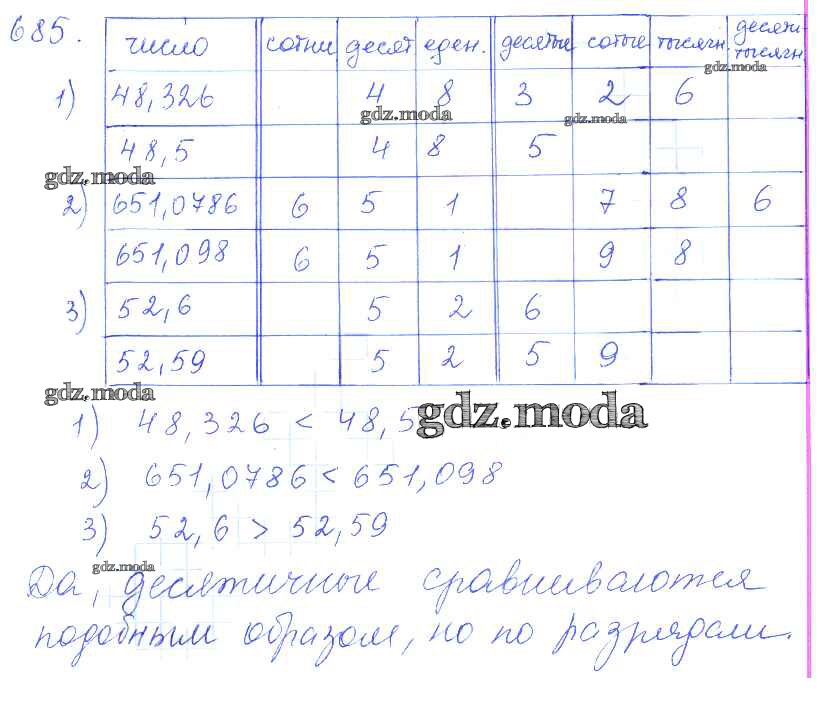 685.
число сотни десят еден. десятые сотые тысячн. десяти-тысячн.
gdz.moda
1) 48,326 4 8 3 2 6
gdz.moda gdz.moda
48,5 4 8 5
gdz.moda
2) 651,0786 6 5 1 7 8 6
651,098 6 5 1 9 8
3) 52,6 5 2 6
52,59 5 2 5 9
gdz.moda
1) 48,326 < 48,5 gdz.moda
2) 651,0786 < 651,098
3) 52,6 > 52,59
gdz.moda
Да, десятичные сравниваются
подобным образом, но по разрядам.